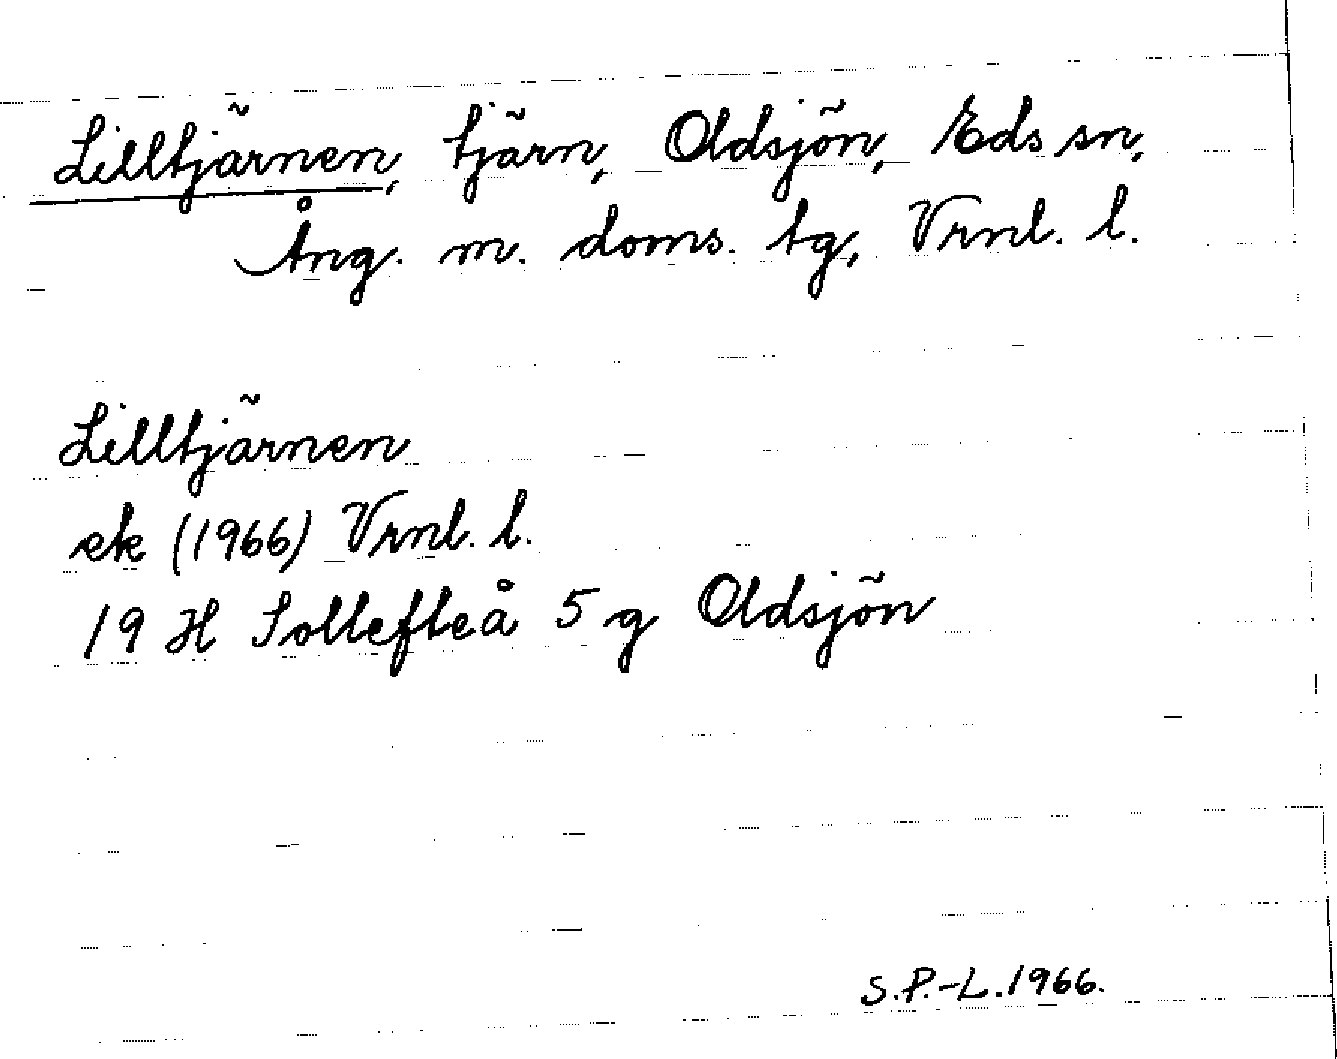 Lilltjärnen, tjärn, Oldsjön, Eds sn,
Ång. m. doms. tg, Vrnl. l.
Lilltjärnen
ek (1966) Vrnl. l.
19 H Sollefteå 5 g Oldsjön
S.P.-L.1966.